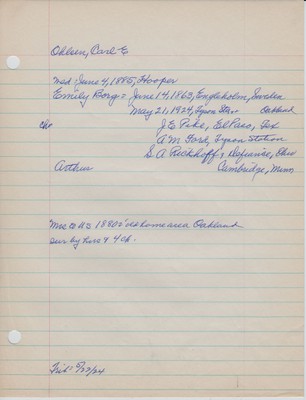 Ohlsen, Carl E
Md. June 4, 1885, Hooper
Emily Borg = June 14, 1863, Engleholm, Sweden
May 21, 1924, Lyon Twp. Oakland
Ch
J E Peke, El Paso, Tex
A M Ford, Tyson Station
S A Rickhoff, Defiance, Ohio
Arthur Cambridge, Minn
Mvd to US 1880s' old home area Oakland
sur by hus & 4 ch.
Trib= 5/22/24